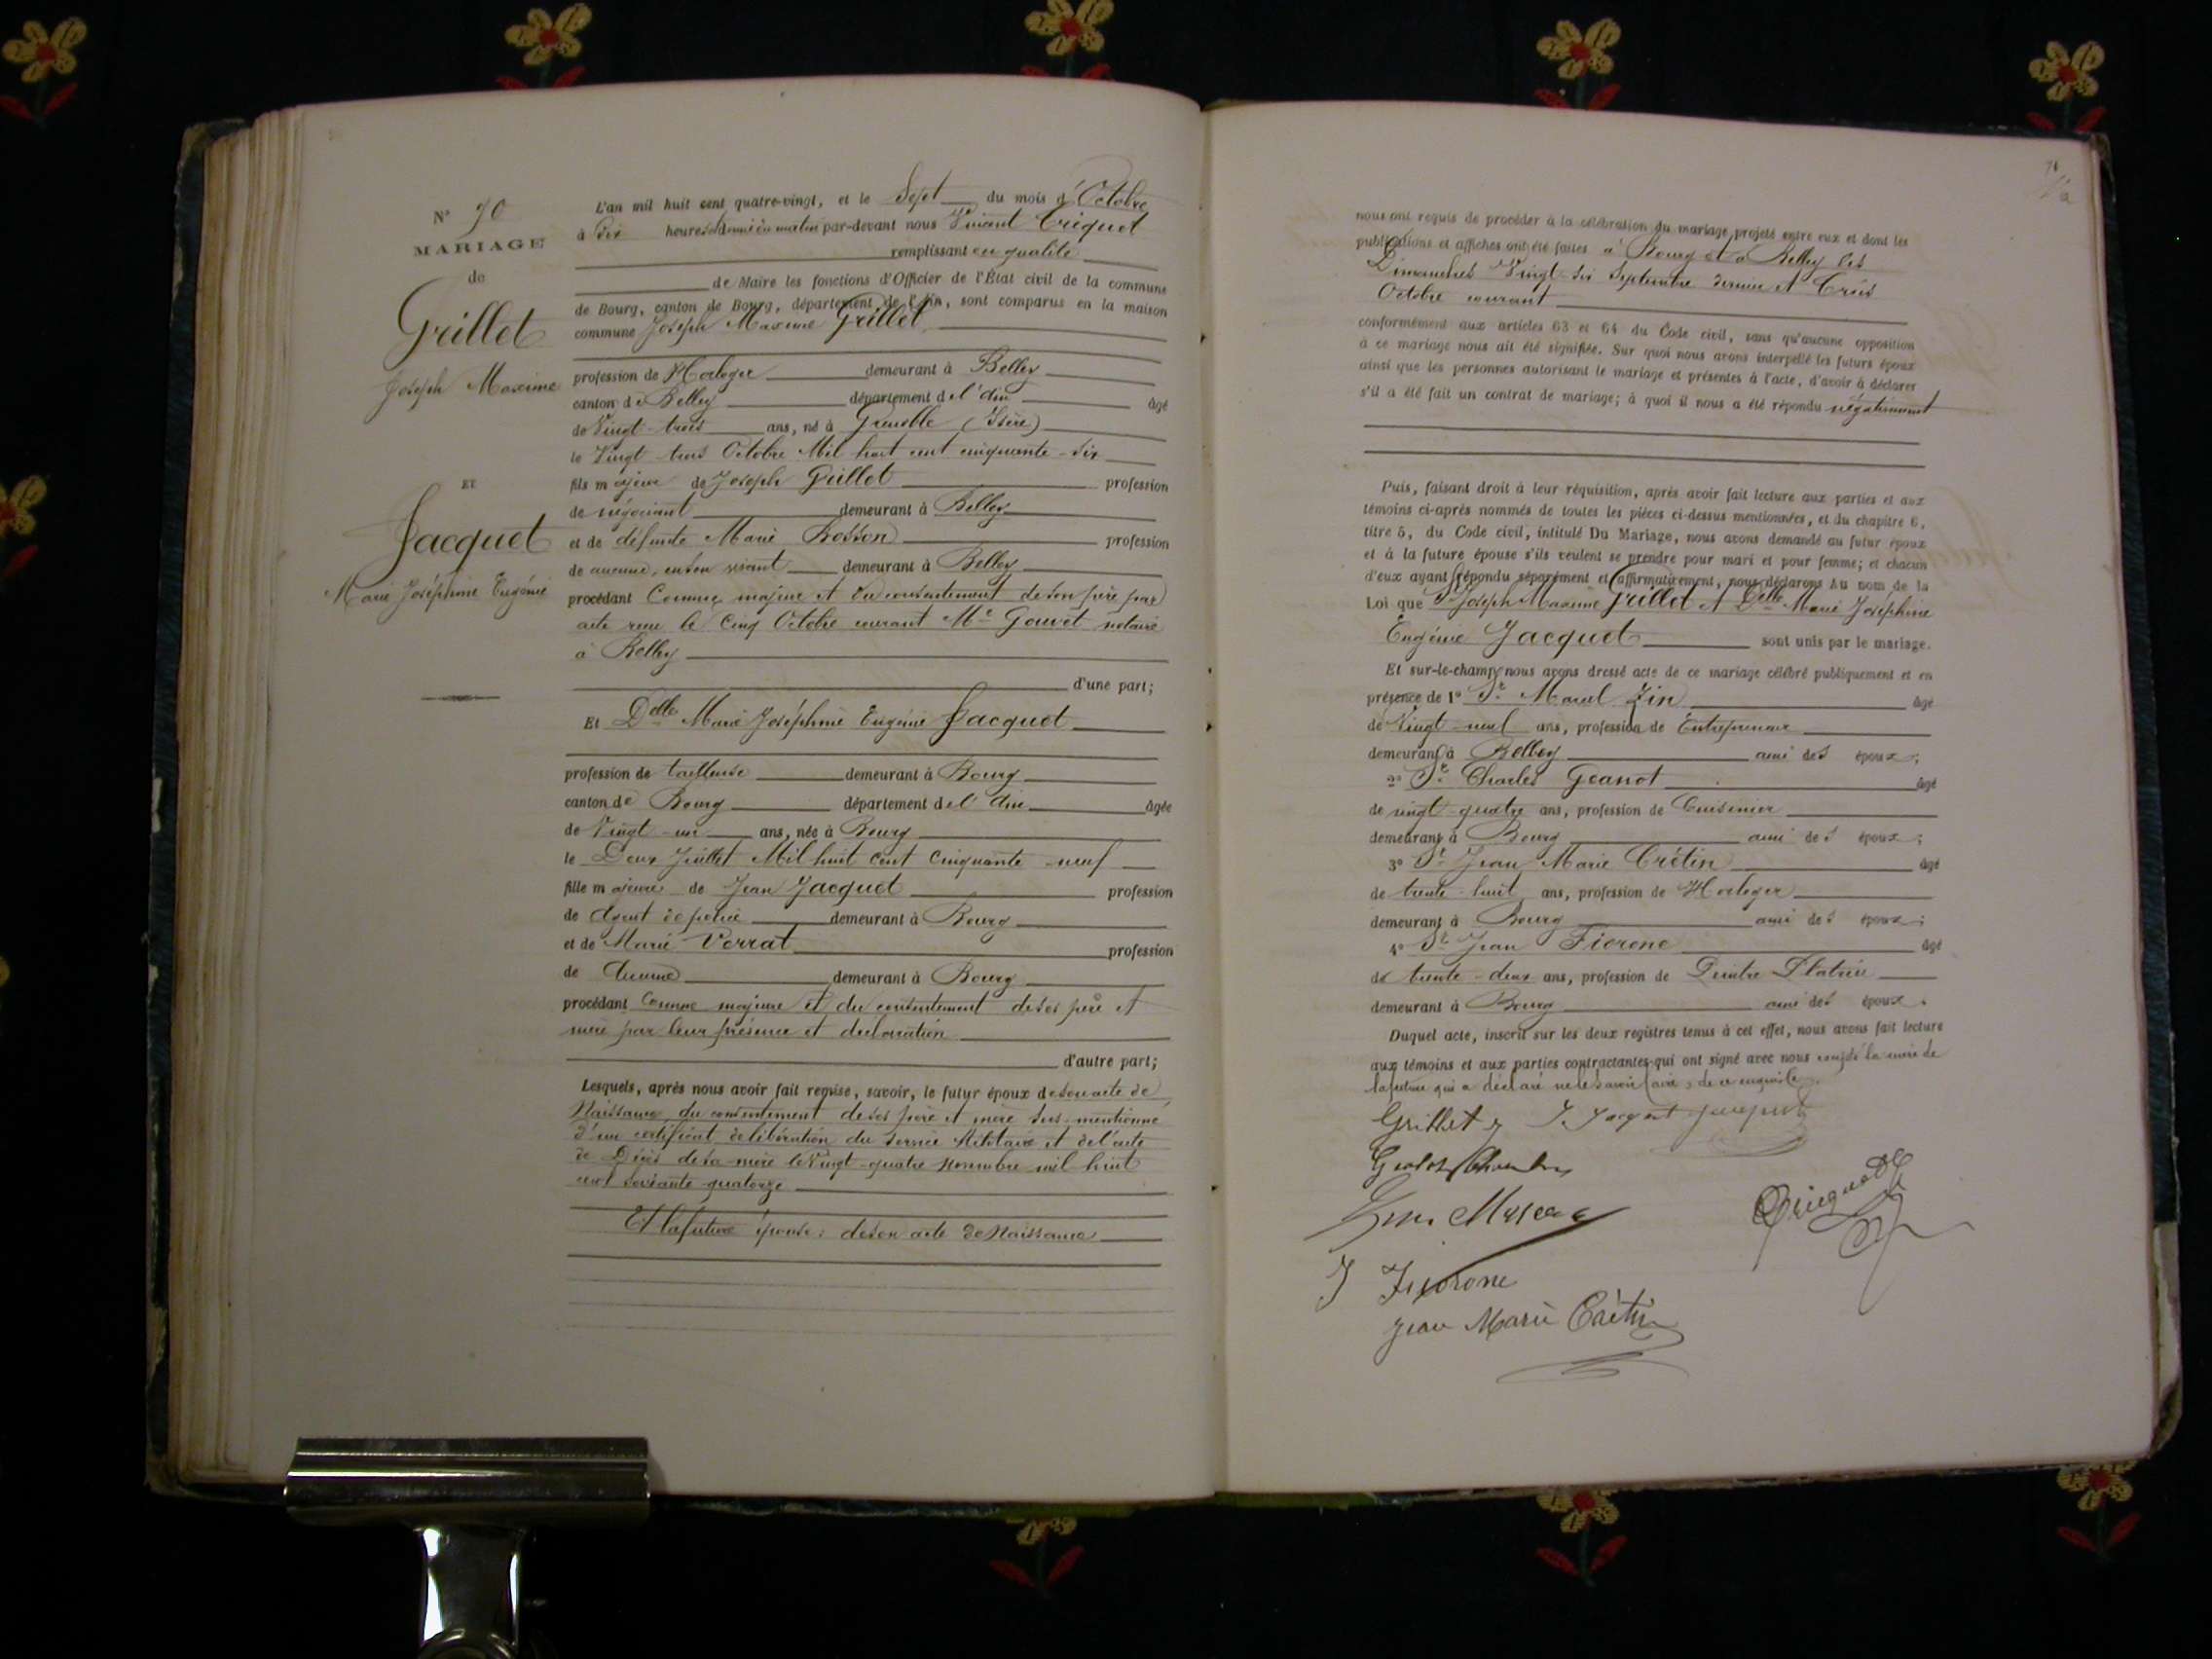 N° 70
MARIAGE
de
Grillet
Joseph Maxime
ET
Jacquet
Marie Joséphine Eugénie
L'an mil huit cent quatre-vingt, et le Sept du mois d'Octobre
à dix heures et demie du matin par-devant nous Vincent
remplissant en qualité
de Maire les fonctions d'Officier de l'État civil de la commune
de Bourg, canton de Bourg, département de l'Ain, sont comparus en la maison
commune Joseph Maxime Grillet
profession de Horloger demeurant à Belley
canton de Belley département de l'Ain âgé
de Vingt-trois ans, né à Grenoble (Isère)
le Vingt trois Octobre Mil huit cent cinquante-six
fils majeur de Joseph Grillet profession
de négociant demeurant à Belley
et de défunte Marie Bosson profession
de aucune, en son vivant demeurant à Belley
procédant Comme majeur et du consentement de son père par
acte reçu le Cinq Octobre courant Me Gouvet notaire
à Belley
d'une part;
Et Delle Marie Joséphine Eugénie Jacquet
profession de tailleuse demeurant à Bourg
canton de Bourg département de l'Ain âgée
de Vingt-un ans, née à Bourg
le Deux Juillet Mil huit Cent Cinquante-neuf
fille majeure de Jean Jacquet profession
de Agent de police demeurant à Bourg
et de Marie Verrat profession
de Aucune demeurant à Bourg
procédant Comme majeure et du consentement de ses père et
mère par leur présence et déclaration
d'autre part;
Lesquels, après nous avoir fait remise, savoir, le futur époux de son acte de
Naissance du consentement de ses père et mère sus-mentionné
d'un certificat de libération du service Militaire et de l'acte
de Décès de sa mère le Vingt-quatre Novembre mil huit
cent soixante-quatorze
Et la future épouse: de son acte de Naissance
nous ont requis de procéder à la célébration du mariage projeté entre eux et dont les
publications et affiches ont été faites à Bourg et à Belley les
Dimanches Vingt-six Septembre dernier et Trois
Octobre courant
conformément aux articles 63 et 64 du Code civil, sans qu'aucune opposition
à ce mariage nous ait été signifiée. Sur quoi nous avons interpellé les futurs époux
ainsi que les personnes autorisant le mariage et présentes à l'acte, d'avoir à déclarer
s'il a été fait un contrat de mariage; à quoi il nous a été répondu négativement
Puis, faisant droit à leur réquisition, après avoir fait lecture aux parties et aux
témoins ci-après nommés de toutes les pièces ci-dessus mentionnées, et du chapitre 6,
titre 5, du Code civil, intitulé Du Mariage, nous avons demandé au futur époux
et à la future épouse s'ils veulent se prendre pour mari et pour femme; et chacun
d'eux ayant répondu séparément et affirmativement, nous déclarons Au nom de la
Loi que Sr Joseph Maxime Grillet et Delle Marie Joséphine
Eugénie Jacquet sont unis par le mariage.
Et sur-le-champ nous avons dressé acte de ce mariage célébré publiquement et en
présence de 1° Sr Marcel Zin âgé
de Vingt-neuf ans, profession de Entrepreneur
demeurant à Belley ami des époux;
2° Sr Charles Geanot âgé
de vingt-quatre ans, profession de Cuisinier
demeurant à Bourg ami des époux;
3° Sr Jean Marie Crétin âgé
de trente-huit ans, profession de Horloger
demeurant à Bourg ami des époux;
4° Sr Jean Fiorone âgé
de trente-deux ans, profession de Peintre Platrier
demeurant à Bourg ami des époux.
Duquel acte, inscrit sur les deux registres tenus à cet effet, nous avons fait lecture
aux témoins et aux parties contractantes qui ont signé avec nous excepté la mère de
la future qui a déclaré ne le savoir faire, de ce enquise.
Grillet J. Jacquet Jacquet
J Fiorone
Jean Marie Crétin